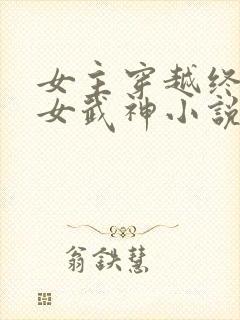 女主穿越终
女武神小説
翁鉄慧